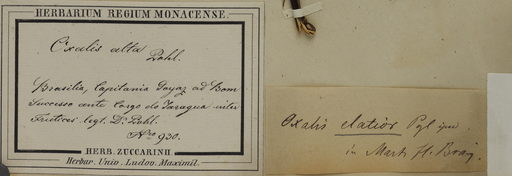 HERBARIUM REGIUM MONACENSE.
Oxalis alta
Pohl.
Brasilia, Capitania Goyaz ad Bom
Successo ante Corgo do Jaragua inter
Frutices legt. Dr. Pohl.
Nro 930.
HERB. ZUCCARINII
Herbar. Univ. Ludov. Maximil.
Oxalis elatior
in Mart. Fl. Bras.